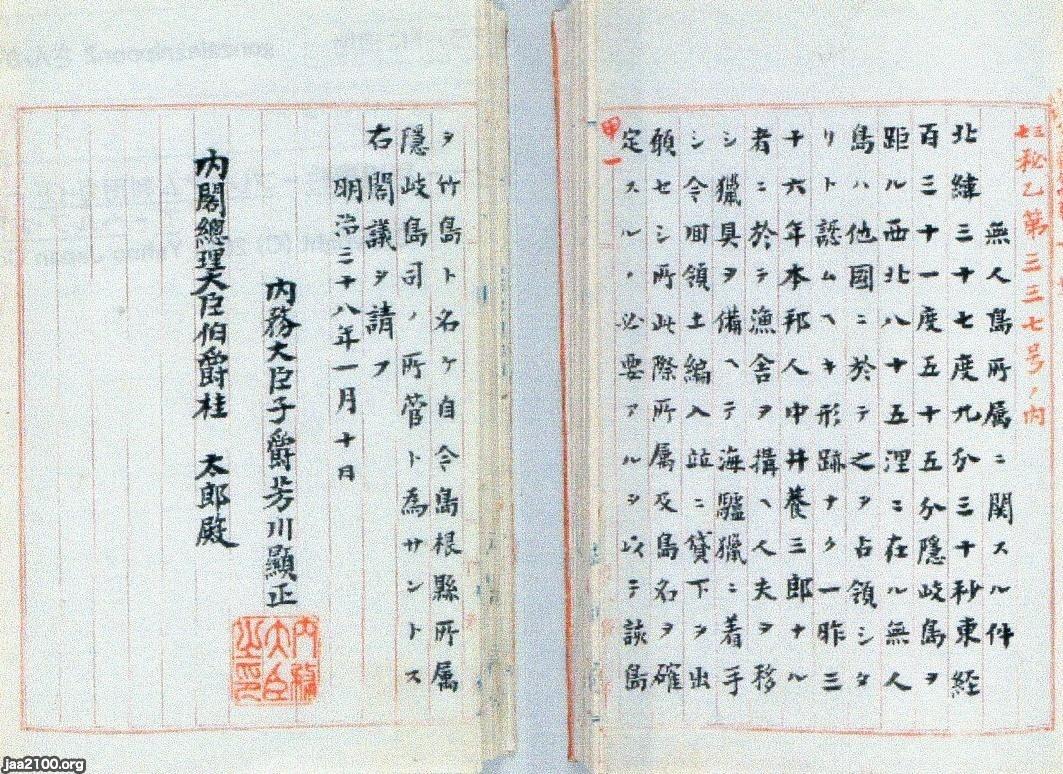 三七秘乙第三三七号ノ内
無人島所属ニ関スル件
北緯三十七度九分三十秒東経
百三十一度五十五分隠岐島ヲ
距ル西北八十五浬ニ在ル無人
島ハ他國ニ於テ之ヲ占領シタ
リト認ムヘキ形跡ナク一昨三
十六年本邦人中井養三郎ナル
者ニ於テ漁舎ヲ搆ヘ人夫ヲ移
シ獵具ヲ備ヘテ海驢獵ニ着手
シ今回領土編入竝ニ貸下ヲ出
願セシ所此際所属及島名ヲ確
定スルノ必要アルヲ以テ該島
甲一
ヲ竹島ト名ケ自今島根縣所属
隠岐島司ノ所管ト為サントス
右閣議ヲ請フ
明治三十八年一月十日
内務大臣子爵芳川顯正
内務大臣之印
内閣總理大臣伯爵桂 太郎殿
jaa2100.org